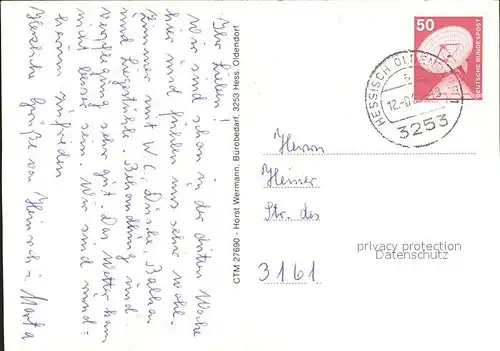 Ihr Lieben!
Wir sind schon in der dritten Woche
hier und fühlen uns sehr wohl.
Zimmer mit WC, Dusche, Balkon
und Liegestühle. Behandlung und
Verpflegung sehr gut. Das Wetter kann
nicht besser sein. Wir sind rund=
herum zufrieden
Herzliche Grüße von Heinrich u. Marta
CTM 27690 - Horst Wermann, Bürobedarf, 3253 Hess. Oldendorf
50
DEUTSCHE BUNDESPOST
HESSISCH OLDENDORF 1
3253
Herrn
Heiner
Str. des
privacy protection
Datenschutz
3161